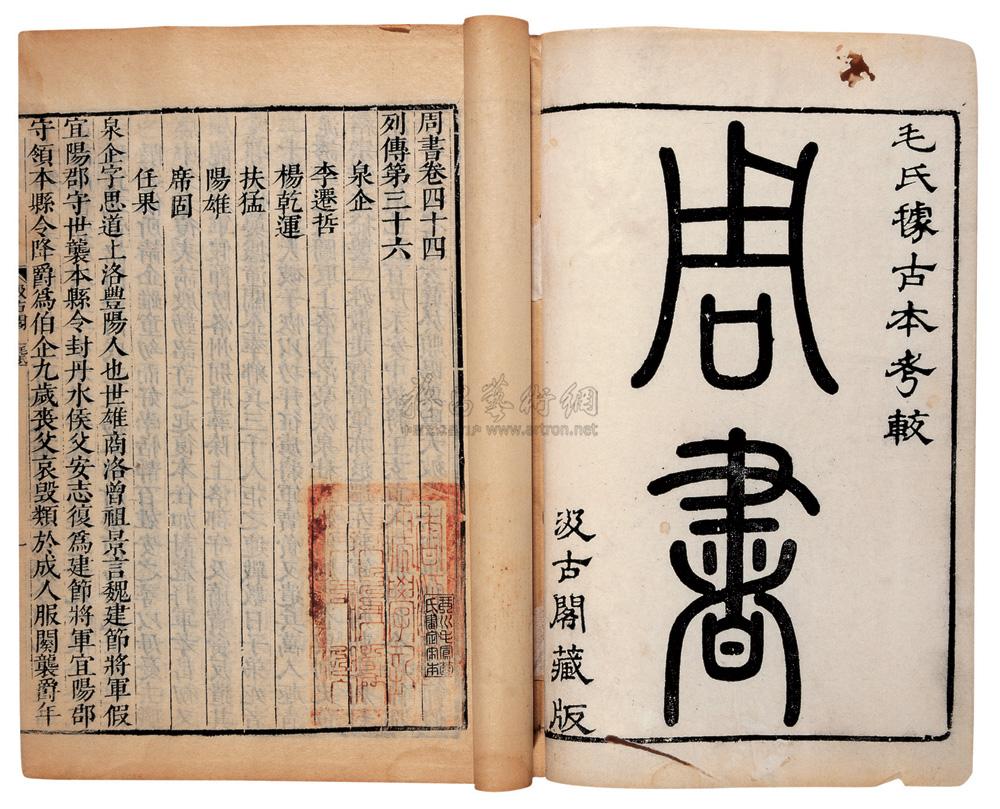 毛氏據古本考較
周書
汲古閣藏版
周書卷四十四
列傳第三十六
泉企
李遷哲
楊乾運
扶猛
陽雄
席固
任果
泉企字思道上洛豐陽人也世雄商洛曾祖景言魏建節將軍假
宜陽郡守世襲本縣令封丹水侯父安志復爲建節將軍宜陽郡
守領本縣令降爵爲伯企九歲喪父哀毀類於成人服闋襲爵年
www.artron.net